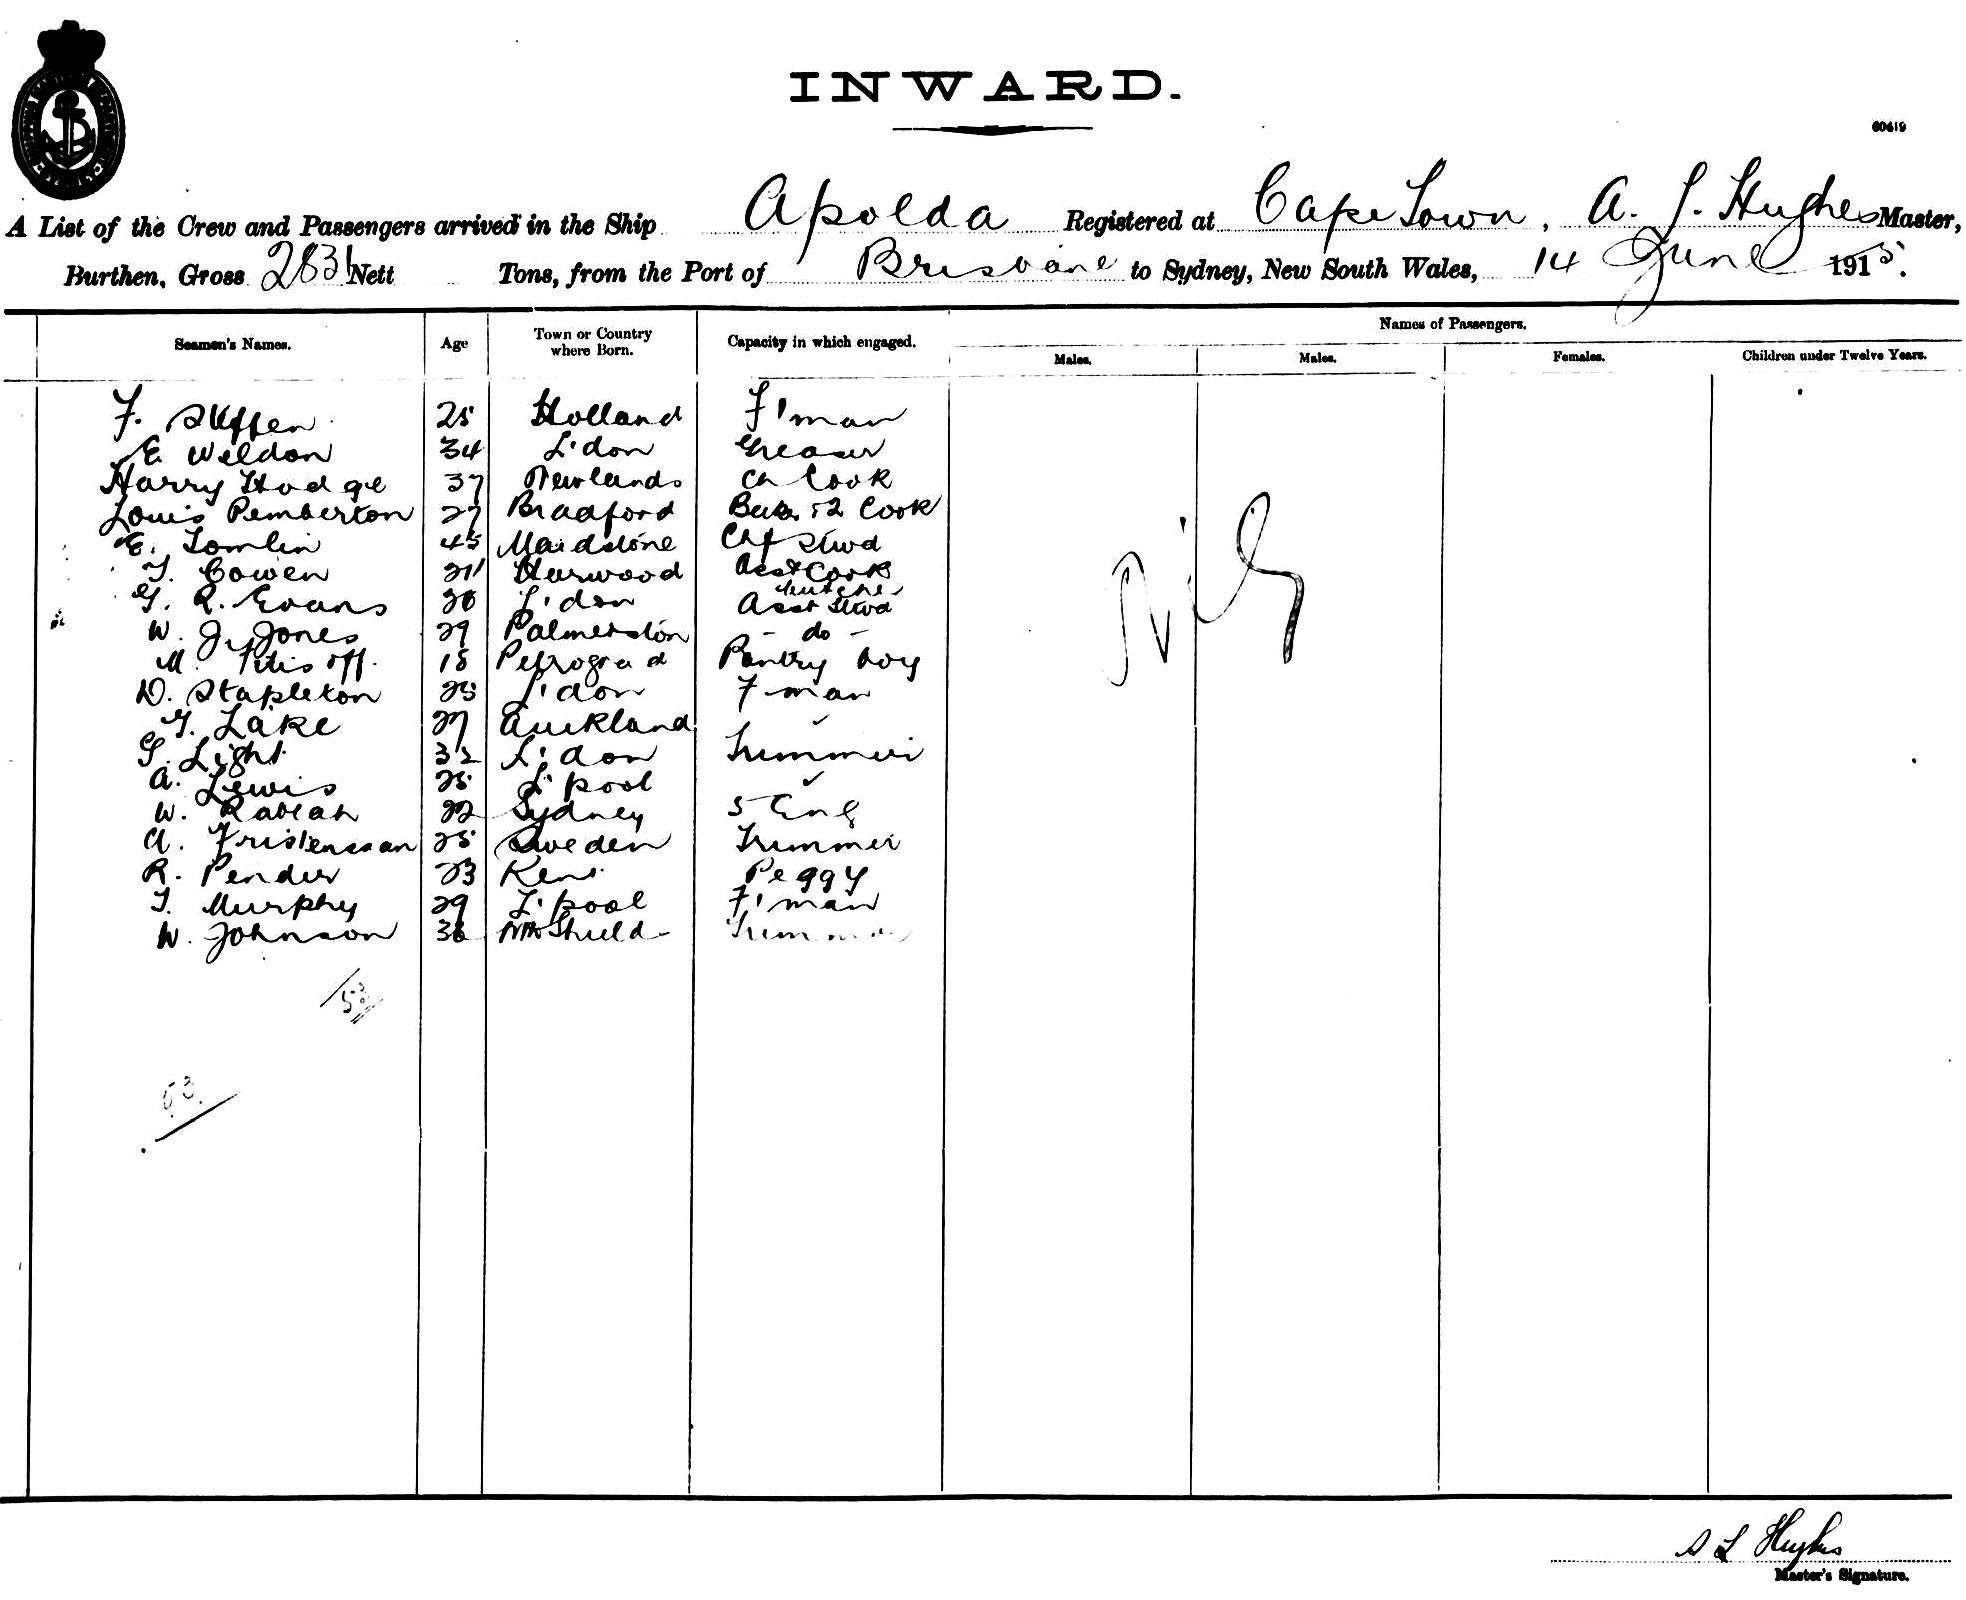 INWARD.
60419
A List of the Crew and Passengers arrived in the Ship Apolda Registered at Cape Town, A. L. Hughes Master,
Burthen, Gross 2831 Nett Tons, from the Port of Brisbane to Sydney, New South Wales, 14 June 1915.
Names of Passengers.
Seamen's Names. Age Town or Country where Born. Capacity in which engaged. Males. Males. Females. Children under Twelve Years.
F. Steffen 25 Holland F'man
E. Weldon 34 L'don Greaser
Harry Hodge 37 Newlands Ch Cook
Louis Pemberton 27 Bradford 2 Cook
E. Tomlin 45 Maidstone Chf Stwd
T. Cowen 21 Harwood Asst Cook
G. R. Evans 20 L'don Asst Stwd
W. J. Jones 29 Palmerston - do -
M. 18 Petrograd Pantry boy
D. Stapleton 25 L'don F'man
T. Lake 27 Auckland
G. Light 32 L'don Trimmer
A. Lewis 25 L'pool
W. 22 Sydney 5 Eng
A. Fristenssan 25 Sweden Trimmer
R. Pender 23 Kent Peggy
T. Murphy 29 L'pool F'man
W. Johnson 36 Nth Shield Trimmer
Nil
53
53
A L Hughes
Master's Signature.